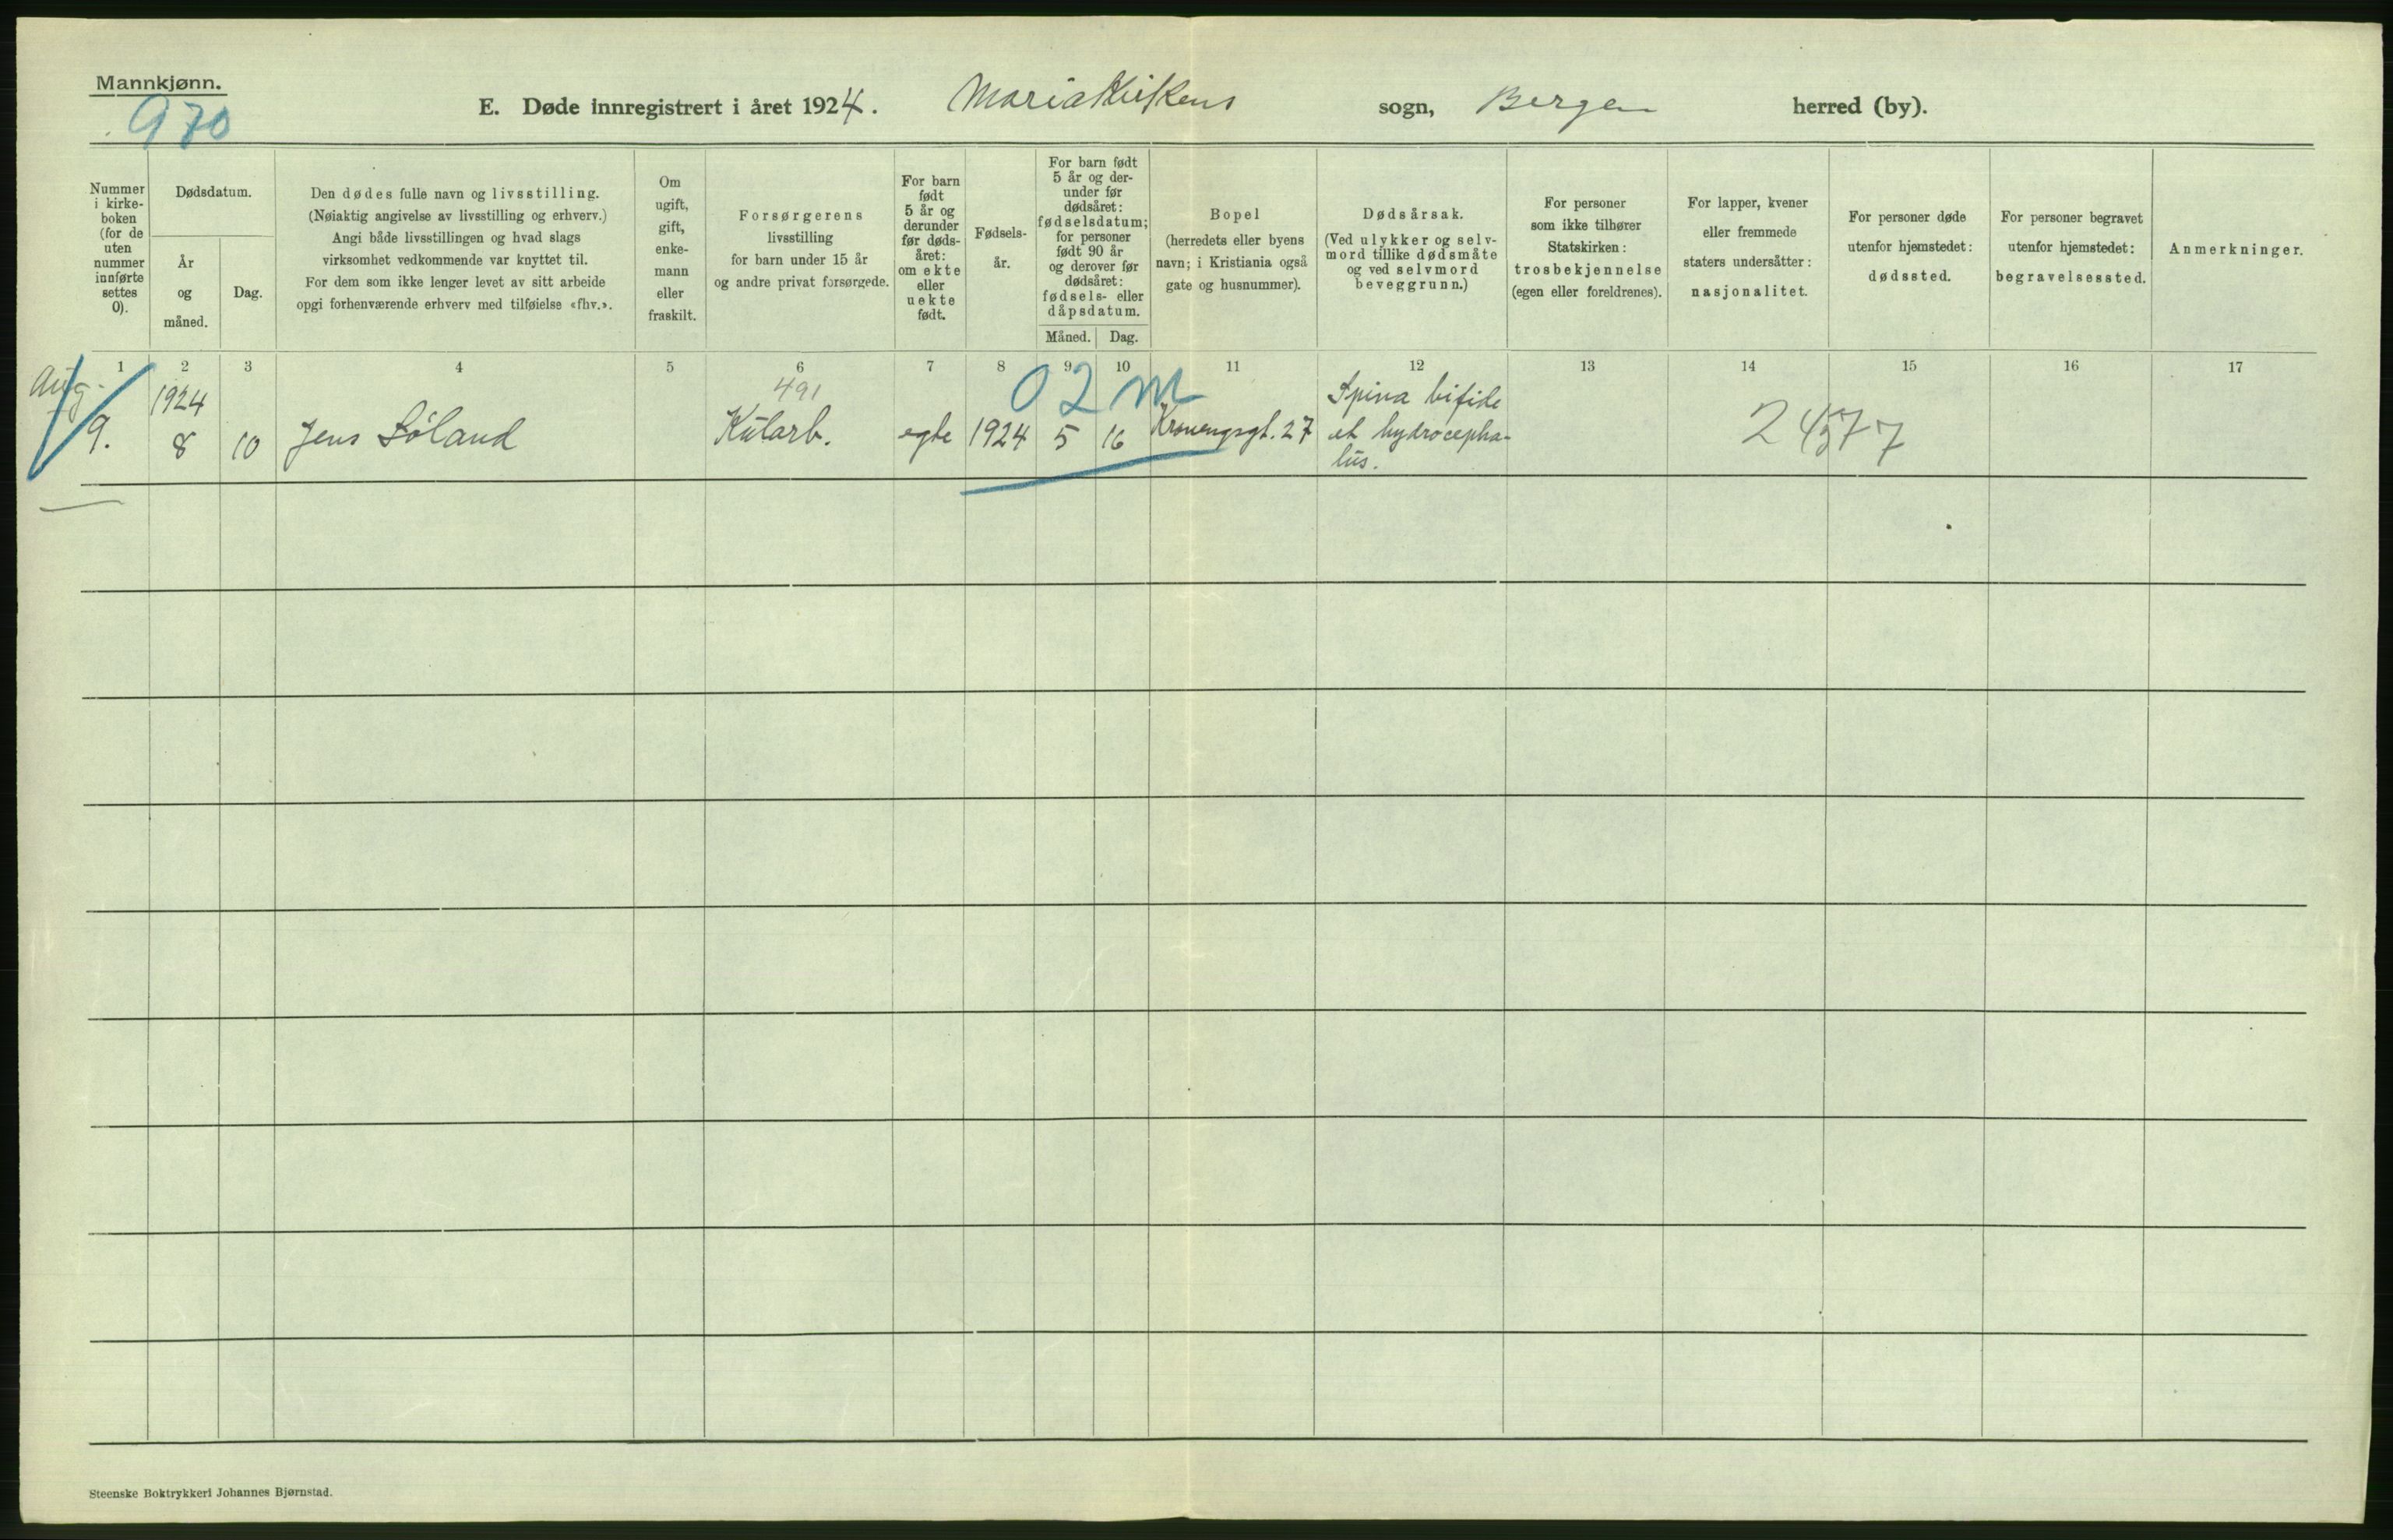 Mannkjønn.
970
E. Døde innregistrert i året 1924. Mariakirkens sogn, Bergen herred (by).
Nummer
i kirke-
boken
(for de
uten
nummer
innførte
settes
0).
Dødsdatum.
År
og
måned.
Dag.
Den dødes fulle navn og livsstilling.
(Nøiaktig angivelse av livsstilling og erhverv.)
Angi både livsstillingen og hvad slags
virksomhet vedkommende var knyttet til.
For dem som ikke lenger levet av sitt arbeide
opgi forhenværende erhverv med tilføielse «fhv.».
Om
ugift,
gift,
enke-
mann
eller
fraskilt.
Forsørgerens
livsstilling
for barn under 15 år
og andre privat forsørgede.
For barn
født
5 år og
derunder
før døds-
året:
om ekte
eller
uekte
født.
Fødsels-
år.
For barn født
5 år og der-
under før
dødsåret:
fødselsdatum;
for personer
født 90 år
og derover før
dødsåret:
fødsels- eller
dåpsdatum.
Måned. Dag.
Bopel
(herredets eller byens
navn; i Kristiania også
gate og husnummer).
Dødsårsak.
(Ved ulykker og selv-
mord tillike dødsmåte
og ved selvmord
beveggrunn.)
For personer
som ikke tilhører
Statskirken:
trosbekjennelse
(egen eller foreldrenes).
For lapper, kvener
eller fremmede
staters undersåtter:
nasjonalitet.
For personer døde
utenfor hjemstedet:
dødssted.
For personer begravet
utenfor hjemstedet:
begravelsessted.
Anmerkninger.
1 2 3 4 5 6 7 8 9 10 11 12 13 14 15 16 17
Aug.
1924
491
02 m
Spina bifida
9. 8 10 Jens Søland Kularb. egte 1924 5 16 Kronengsgt. 27 et hydrocepha-
lus.
2457 7
Steenske Boktrykkeri Johannes Bjørnstad.